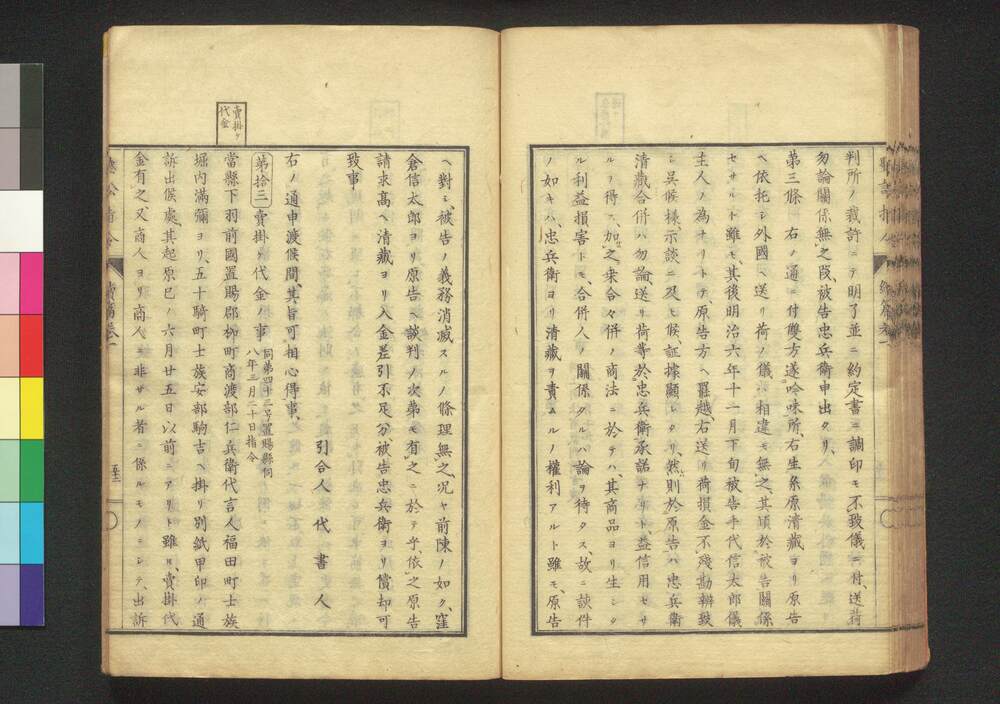 判所ノ裁許ニテ明了並ニ約定書ニ調印モ不致儀ニ付、送荷
勿論關係無之段、被告忠兵衛申出タリ、
第三條 右ノ通ニ付雙方遂吟味所、右生糸原清藏ヨリ原告
ヘ依托シ外國ヘ送リ荷ノ儀ハ相違モ無之、其頃於被告關係
セサルト雖モ、其後明治六年十一月下旬被告手代信太郎儀
主人ノ為ナリトテ、原告方ヘ罷越、右送リ荷損金不殘勘辨致
シ呉候樣、示談ニ及ヒ候、証據顯レタリ、然則於原告ハ忠兵衛
清藏合併ハ勿論、送リ荷等於忠兵衛承諾ナリト益信用セサ
ルヲ得ス、加之乗合々併ノ商法ニ於テハ、其商品ヨリ生シタ
ル利益損害トモ、合併人ノ關係タルハ論ヲ待タス、故ニ談件
ノ如キハ、忠兵衛ヨリ清藏ヲ責ムルノ權利アルト雖モ、原告
ヘ對シ、被告ノ義務消滅スルノ條理無之、况ヤ前陳ノ如ク、窪
倉信太郎ヨリ原告ヘ談判ノ次第モ有之ニ於テヲ乎、依之原告
請求高ヘ清藏ヨリ入金差引不足分、被告忠兵衛ヨリ償却可
致事
右ノ通申渡候間、其旨可相心得事、
引合人 代書人
賣掛ケ
代金
第拾三 賣掛ケ代金ノ事
同第四十三号置賜縣伺
八年三月二十日指令
當縣下羽前國置賜郡柳町商渡部仁兵衛代言人福田町士族
堀内満彌ヨリ、五十騎町士族安部駒吉ヘ掛リ別紙甲印ノ通
訴出候處、其起原巳ノ六月廿五日以前ニアリト雖モ、賣掛代
金有之、又商人ヨリ商人ニ非サル者ニ係ルモノニシテ、出訴